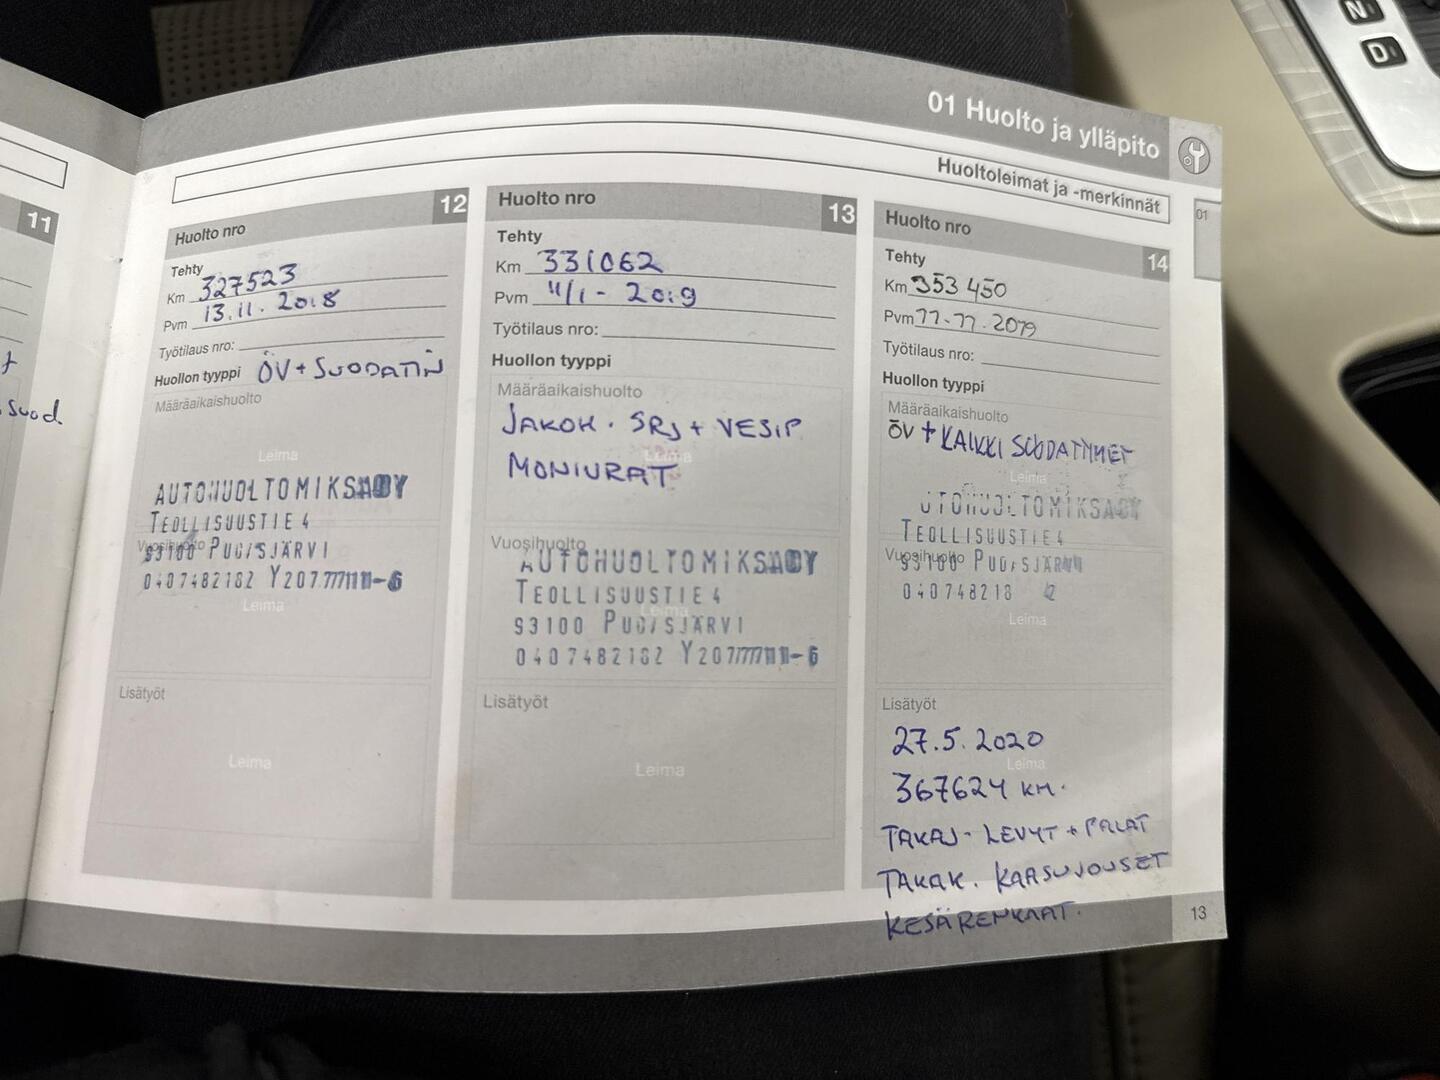 01 Huolto ja ylläpito
Huoltoleimat ja -merkinnät
01
11
suod
Huolto nro 12
Tehty
Km 327523
Pvm 13.11.2018
Työtilaus nro:
Huollon tyyppi ÖV + SUODATIN
Määräaikaishuolto
Leima
AUTOHUOLTO MIKSA OY
TEOLLISUUSTIE 4
93100 PUDASJÄRVI
Vuosihuolto
0407482182
Leima
Lisätyöt
Leima
Huolto nro 13
Tehty
Km 331062
Pvm 11/1 - 2019
Työtilaus nro:
Huollon tyyppi
Määräaikaishuolto
JAKOH. SRJ + VESIP
Leima
MONIURAT
Vuosihuolto
AUTOHUOLTO MIKSA OY
TEOLLISUUSTIE 4
Leima
93100 PUDASJÄRVI
0407482182
Lisätyöt
Leima
Huolto nro 14
Tehty
Km 353 450
Pvm 11.11.2019
Työtilaus nro:
Huollon tyyppi
Määräaikaishuolto
ÖV + KAIKKI SUODATTIMET
Leima
UTOHUOLTO MIKSA OY
TEOLLISUUSTIE 4
Vuosihuolto
93100 PUDASJÄRVI
040748218 2
Leima
Lisätyöt
27.5.2020
Leima
367624 KM.
TAKAJ- LEVYT + PALAT
TAKAK. KAASUJOUSET
KESÄRENKAAT.
13
N
D